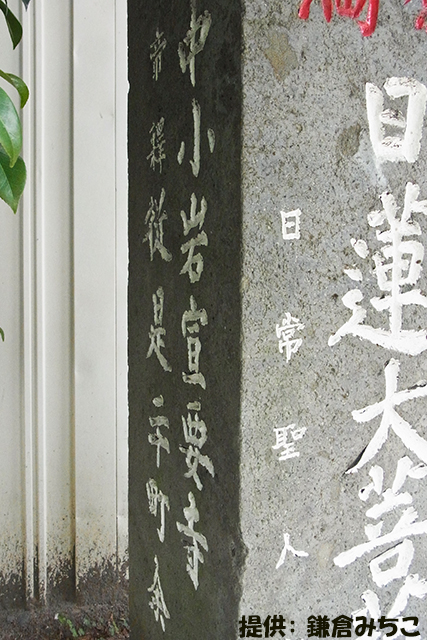 日蓮大菩
日常聖人
中小岩宣要寺
帝釋従是二町余
提供：鎌倉みちこ